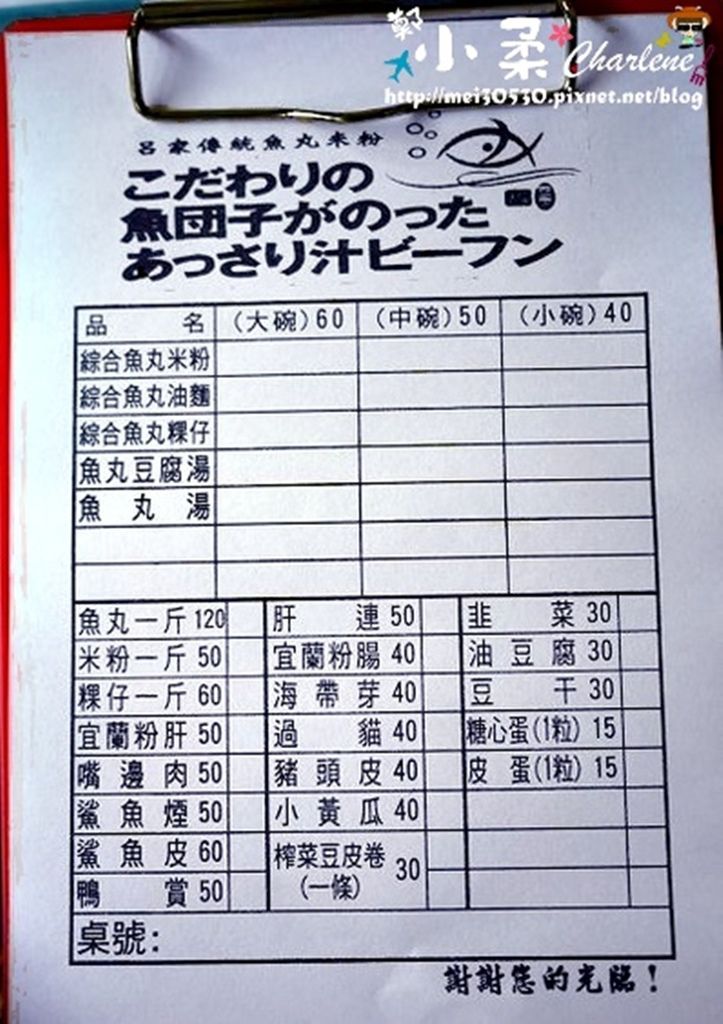 鄭小柔Charlene
http://mei30530.pixnet.net/blog
呂家傳統魚丸米粉
こだわりの
魚団子がのった
あっさり汁ビーフン
品名 (大碗)60 (中碗)50 (小碗)40
綜合魚丸米粉
綜合魚丸油麵
綜合魚丸粿仔
魚丸豆腐湯
魚丸湯
魚丸一斤120 肝連50 韭菜30
米粉一斤50 宜蘭粉腸40 油豆腐30
粿仔一斤60 海帶芽40 豆干30
宜蘭粉肝50 過貓40 糖心蛋(1粒)15
嘴邊肉50 豬頭皮40 皮蛋(1粒)15
鯊魚煙50 小黃瓜40
鯊魚皮60 榨菜豆皮卷(一條)30
鴨賞50
桌號:
謝謝您的光臨!